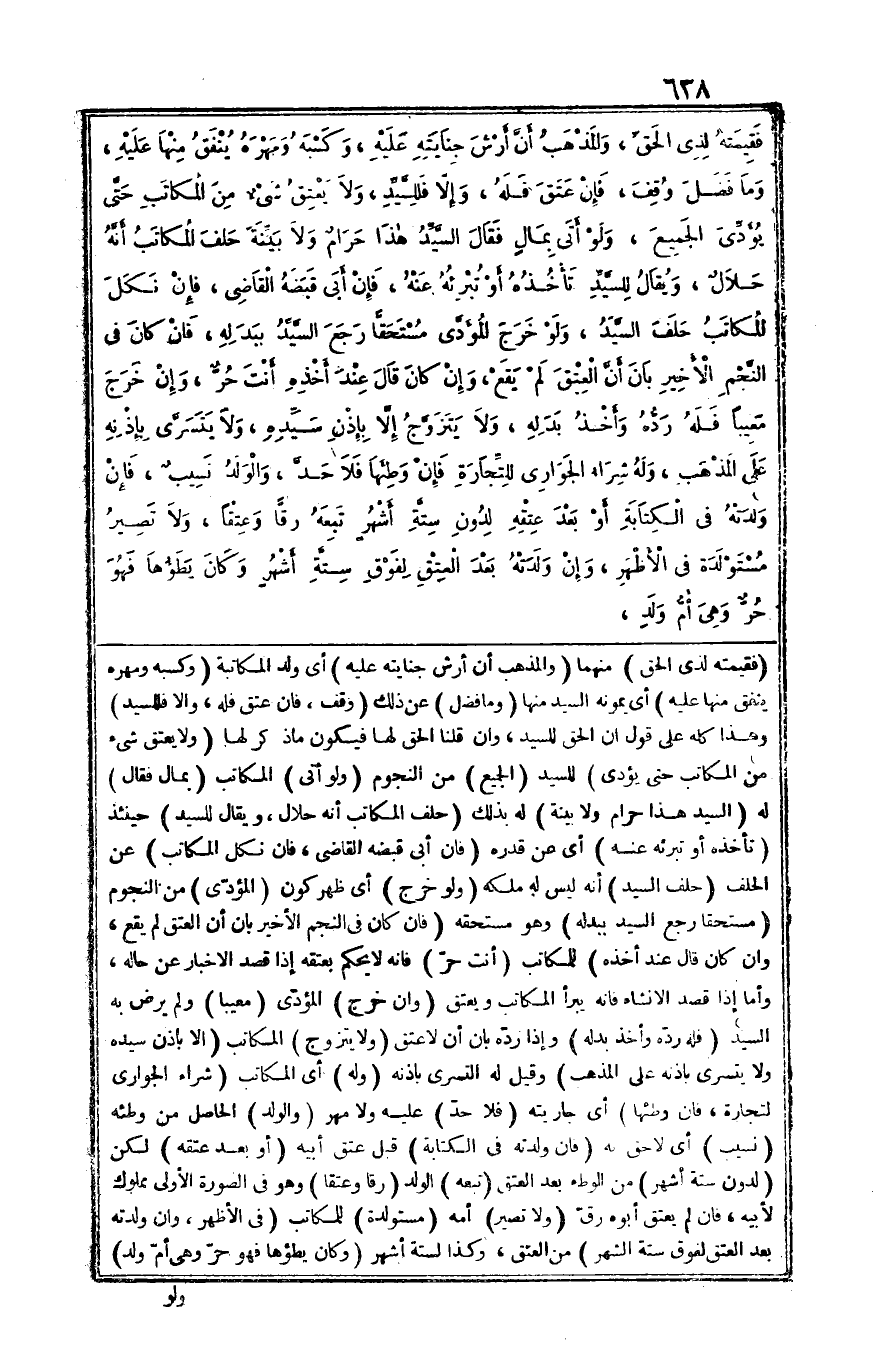 ٦٣٨
فَقِيمَتُهُ لِذِى الحَقِّ ، وَالمَذْهَبُ أَنَّ أَرْشَ جِنايَتِهِ عَلَيْهِ ، وَكَسْبَهُ وَمَهْرَهُ يُنْفَقُ مِنْهَا عَلَيْهِ ،
وَمَا فَضَلَ وُقِفَ ، فَإِنْ عَتَقَ فَلَهُ ، وَإِلَّا فَلِلسَّيِّدِ ، وَلاَ يَعْتِقُ شَىْءٌ مِنَ المُكاتَبِ حَتَّى
يُؤَدِّىَ الجَمِيعَ ، وَلَوْ أَتَى بِمَالٍ فَقَالَ السَّيِّدُ هٰذَا حَرَامٌ وَلاَ بَيِّنَةَ حَلَفَ المُكاتَبُ أَنَّهُ
حَلاَلٌ ، وَيُقَالُ لِلسَّيِّدِ تَأْخُذُهُ أَوْ تُبْرِئُهُ عَنْهُ ، فَإِنْ أَبَى قَبَضَهُ الْقَاضِى ، فَإِنْ نَكَلَ
المُكاتَبُ حَلَفَ السَّيِّدُ ، وَلَوْ خَرَجَ المُؤَدَّى مُسْتَحَقًّا رَجَعَ السَّيِّدُ بِبَدَلِهِ ، فَانْ كَانَ فى
النَّجْمِ الْأَخِيرِ بَانَ أَنَّ الْعِتْقَ لَمْ يَقَعْ ، وَإِنْ كانَ قَالَ عِنْدَ أَخْذِهِ أَنْتَ حُرٌّ ، وَإِنْ خَرَجَ
مَعِيباً فَلَهُ رَدُّهُ وَأَخْذُ بَدَلِهِ ، وَلاَ يَتَزَوَّجُ إِلَّا بِإِذْنِ سَيِّدِهِ ، وَلاَ يَتَسَرَّى بِإِذْنِهِ
عَلَى المَذْهَبِ ، وَلَهُ شِرَاءُ الجَوَارِى لِلتِّجَارَةِ فَإِنْ وَطِئَهَا فَلاَ حَدَّ ، وَالْوَلَدُ نَسِيبٌ ، فَإِنْ
وَلَدَتْهُ فى الْكِتَابَةِ أَوْ بَعْدَ عِتْقِهِ لِدُونِ سِتَّةِ أَشْهُرٍ تَبِعَهُ رِقًّا وَعِتْقًا ، وَلاَ تَصِيرُ
مُسْتَوْلَدَةً فى الْأَظْهَرِ ، وَإِنْ وَلَدَتْهُ بَعْدَ الْعِتْقِ لِفَوْقِ سِتَّةِ أَشْهُرٍ وَكَانَ يَطَؤُهَا فَهُوَ
حُرٌّ وَهِىَ أُمُّ وَلَدٍ ،
(فقيمته لذى الحق) منهما (والمذهب أن أرش جنايته عليه) أى ولد المكاتبة (وكسبه ومهره
ينفق منها عليه) أى يمونه السيد منها (ومافضل) عن ذلك (وقف ، فان عتق فله ، والا فللسيد)
وهذا كله على قول ان الحق للسيد ، وان قلنا الحق لها فيكون ماذ كر لها (ولايعتق شىء
من المكاتب حتى يؤدى) للسيد (الجيع) من النجوم (ولو أتى) المكاتب (بمال فقال)
له (السيد هذا حرام ولا بينة) له بذلك (حلف المكاتب أنه حلال ، ويقال للسيد) حينئذ
(تأخذه أو تبرئه عنه) أى عن قدره (فان أبى قبضه القاضى ، فان نكل المكاتب) عن
الحلف (حلف السيد) أنه ليس له ملكه (ولو خرج) أى ظهر كون (المؤدّى) من النجوم
(مستحقا رجع السيد ببدله) وهو مستحقه (فان كان فى النجم الأخير بان أن العتق لم يقع ،
وان كان قال عند أخذه) للمكاتب (أنت حرّ) فانه لايحكم بعتقه إذا قصد الاخبار عن حاله ،
وأما إذا قصد الانشاء فانه يبرأ المكاتب ويعتق (وان خرج) المؤدّى (معيبا) ولم يرض به
السيد (فله ردّه وأخذ بدله) وإذا ردّه بان أن لاعتق (ولايتزوج) المكاتب (الا بأذن سيده
ولا يتسرى باذنه على المذهب) وقيل له التسرى باذنه (وله) أى المكاتب (شراء الجوارى
لتجارة ، فان وطئها) أى جاريته (فلا حدّ) عليه ولا مهر (والولد) الحاصل من وطئه
(نسيب) أى لاحق به (فان ولدته فى الكتابة) قبل عتق أبيه (أو بعد عتقه) لكن
(لدون ستة أشهر) من الوطء بعد العتق (تبعه) الولد (رقا وعتقا) وهو فى الصورة الأولى مملوك
لأبيه ، فان لم يعتق أبوه رقّ (ولا تصير) أمه (مستولدة) للمكاتب (فى الأظهر ، وان ولدته
بعد العتق لفوق ستة الشهر) من العتق ، وكذا لستة أشهر (وكان يطؤها فهو حرّ وهى أمّ ولد)
ولو